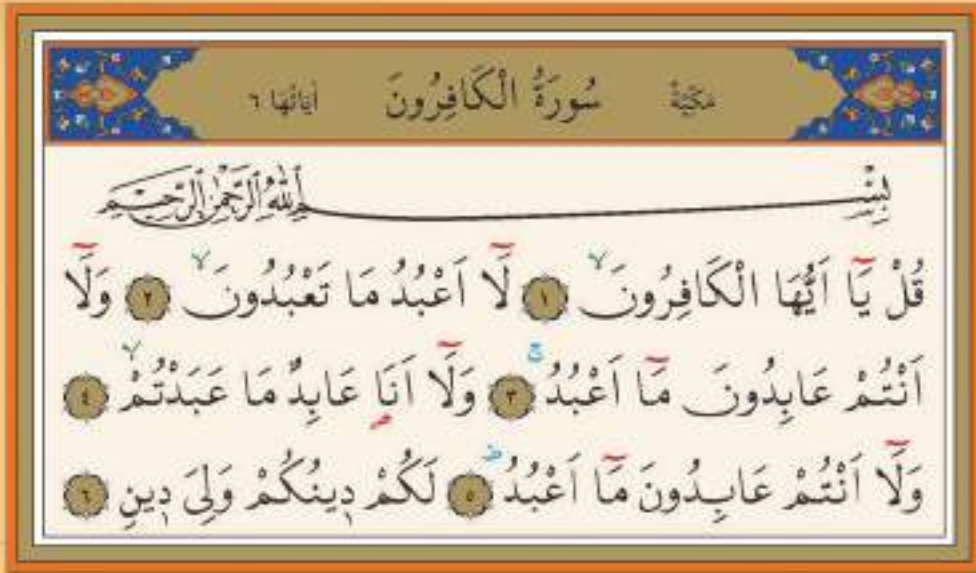 مَكِّيَّةٌ سُورَةُ الْكَافِرُونَ اٰيَاتُهَا ٦
بِسْمِ اللّٰهِ الرَّحْمٰنِ الرَّحِيمِ
قُلْ يَٓا اَيُّهَا الْكَافِرُونَۙ ﴿١﴾ لَٓا اَعْبُدُ مَا تَعْبُدُونَۙ ﴿٢﴾ وَلَٓا
اَنْتُمْ عَابِدُونَ مَٓا اَعْبُدُۚ ﴿٣﴾ وَلَٓا اَنَا۬ عَابِدٌ مَا عَبَدْتُمْۙ ﴿٤﴾
وَلَٓا اَنْتُمْ عَابِدُونَ مَٓا اَعْبُدُۜ ﴿٥﴾ لَكُمْ دِينُكُمْ وَلِيَ دِينِ ﴿٦﴾